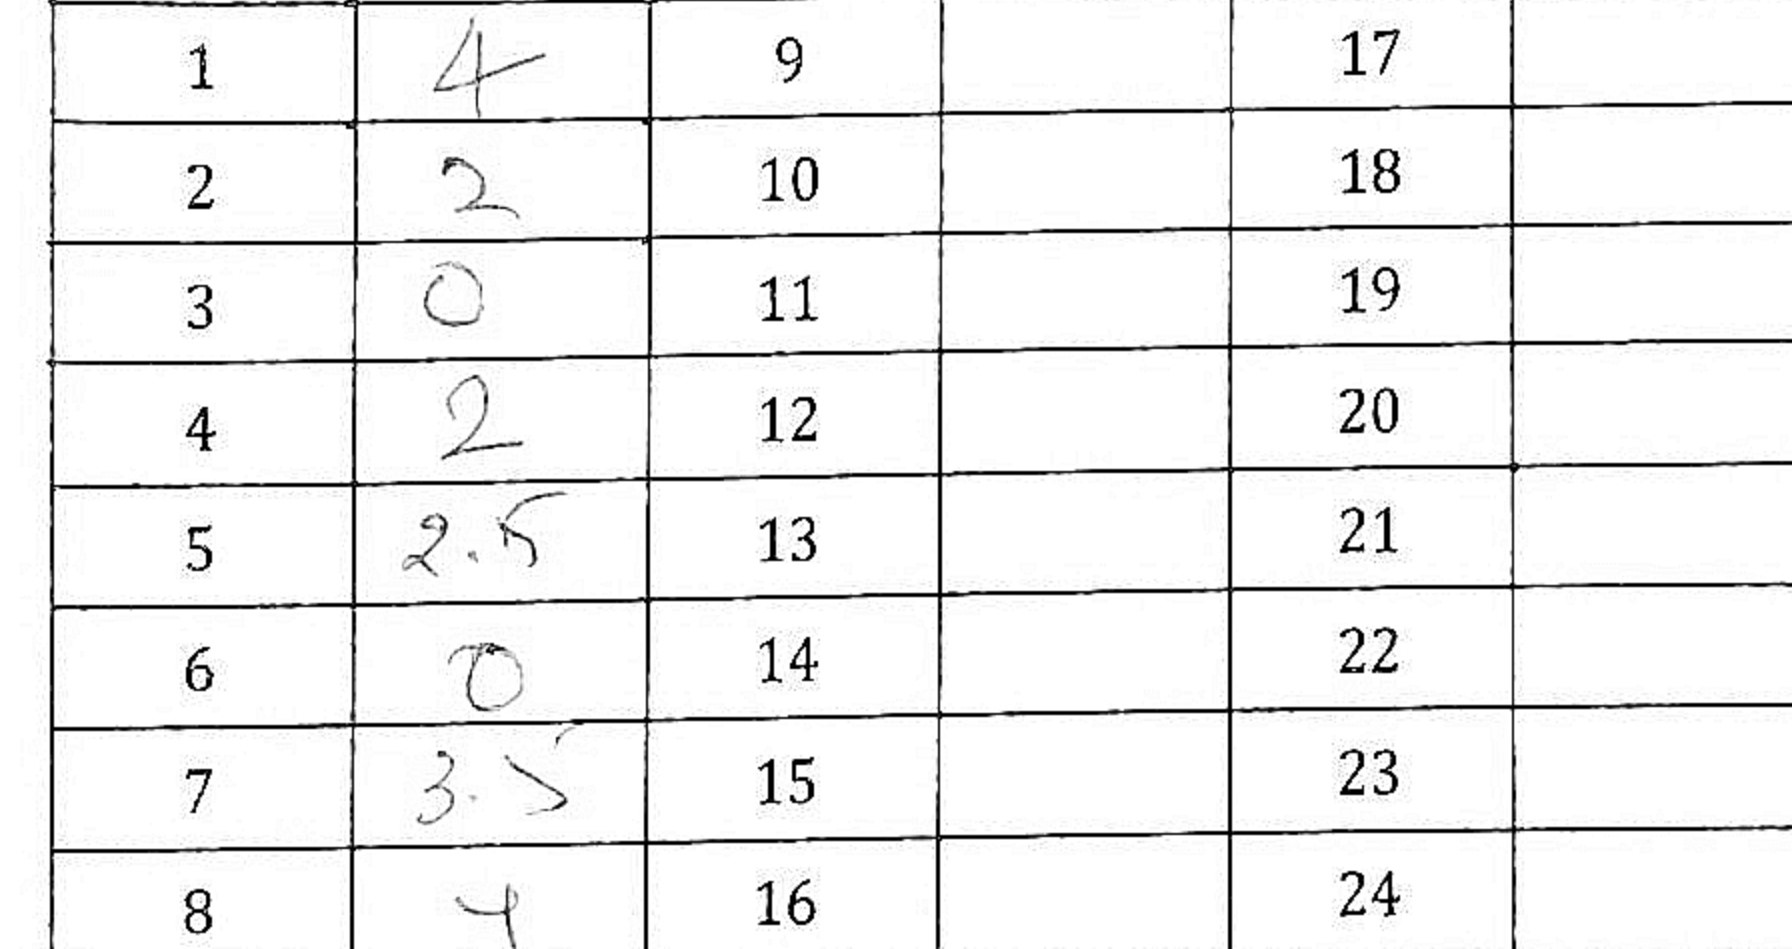 1 4 9 17
2 2 10 18
3 0 11 19
4 2 12 20
5 2.5 13 21
6 0 14 22
7 3.5 15 23
8 4 16 24